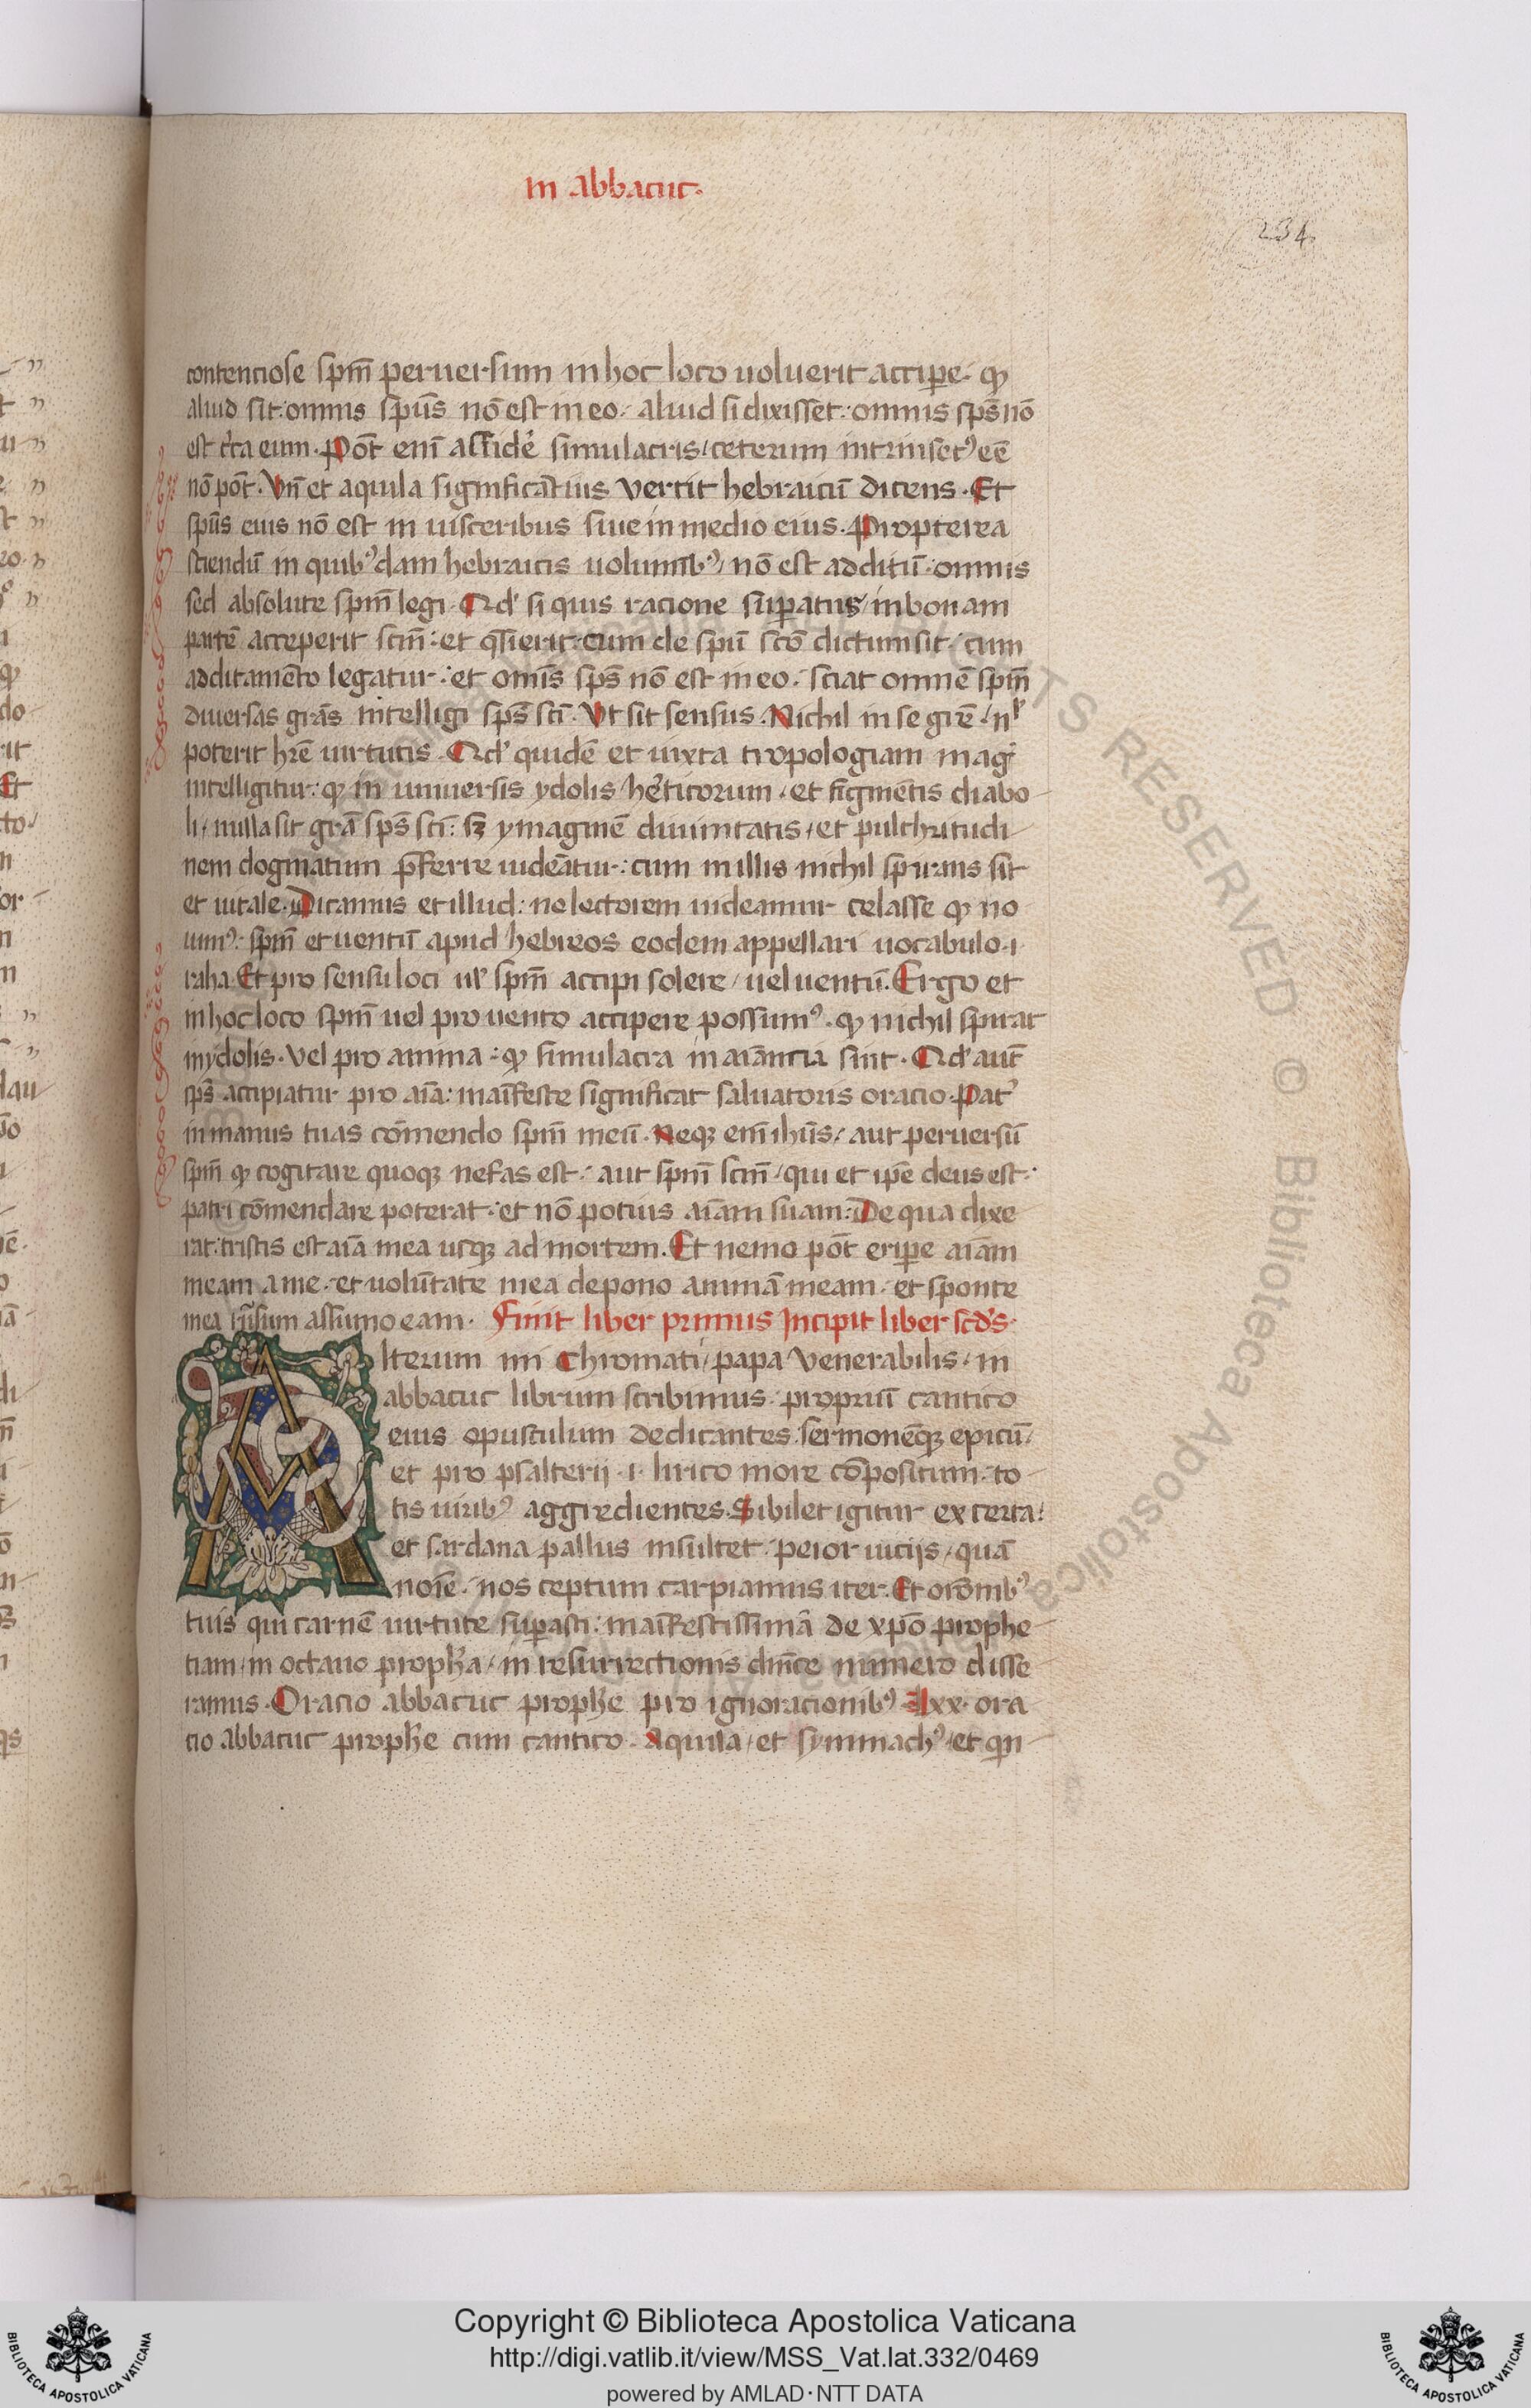 In abbacuc.
234
contenciose spm̄ peruersum in hoc loco uoluerit accipe. qͥ
aliud sit: omnis spūs nō est in eo. aliud si dixisset: omnis spūs nō
est cͨta eum. Pōt enī assidē simulacris/ ceterum intrinsecꝰ eē
nō pōt. Vn̄ et aquila significātius vertit hebraicū dicens. Et
spūs eius nō est in uisceribus siue in medio eius. Propterea
sciendū in quibꝰdam hebraicis uoluminībꝰ/ nō est additū: omnis
sed absolute spm̄ legi. Qd' si quis racione superatus/ in bonam
partē acceperit scm̄: et q̄sierit: cum de spū scō dictum sit. cum
additamēto legatur: et omīs sp̄s nō est in eo. sciat omnē spm̄
diuersas grās intelligi sp̄s scī. Vt sit sensus. Nichil in se grē/ nl̕
poterit hr̄e uirtutis. Qd' quidē et iuxta tropologiam mag̕
intelligitur: qͥ in uniuersis ydolis he̕ticorum. et figmētis diabo
li/ nulla sit grā sp̄s scī: sꝫ ymaginē diuinitatis/ et pulchritudi
nem dogmatum p̄ferre uideātur: cum in illis nichil spirans sit
et uitale. Dicamus et illud: ne lectorem uideamur celasse qͥ no
uimꝰ. spm̄ et uentū apud hebreos eodem appellari uocabulo .i.
raha. Et pro sensu loci ul' spm̄ accipi solere/ uel uentū. Ergo et
in hoc loco spm̄ uel pro uento accipere possumꝰ. qͥ nichil spirat
in ydolis. Vel pro anima: qͥ simulacra inaīancia sint. Qd' aut̄
sp̄s accipiatur pro aīa: maīfeste significat saluatoris oracio. Pat̕
in manus tuas cōmendo spm̄ meū. Neqꝫ enī ihūs/ aut peruersū
spm̄ qͥ cogitare quoqꝫ nefas est. aut spm̄ scm̄/ qui et ip̄e deus est:
patri cōmendare poterat: et nō potius aīam suam: De qua dixe
rat: tristis est aīa mea usqꝫ ad mortem. Et nemo pōt eripe aīam
meam a me. et uolūtate mea depono animā meam. et sponte
mea rursum assumo eam. Finit liber primus Incipit liber scd's.
Alterum mi Chromati/ papa Venerabilis. in
abbacuc librum scribimus. propriū cantico
eius opusculum dedicantes. sermonēqꝫ epicū/
et pro psalterij .i. lirico more cōpositum. to
tis uiribꝰ aggredientes. Sibilet igitur ex certa:
et sardana pallus insultet. peior uicijs/ quā
noīe. nos ceptum carpiamus iter. Et orōnibꝰ
tuis qui carnē uirtute superasti: maīfestissimā de xpō prophe
tiam/ in octauo propha/ in resurrectionis dm̄ce numero disse
ramus. Oracio abbacuc prophe pro ignoracionibꝰ. lxx. ora
cio abbacuc prophe cum cantico. Aquila/ et symmachꝰ/ et qin
Copyright © Biblioteca Apostolica Vaticana
http://digi.vatlib.it/view/MSS_Vat.lat.332/0469
powered by AMLAD·NTT DATA
BIBLIOTECA APOSTOLICA VATICANA
BIBLIOTECA APOSTOLICA VATICANA